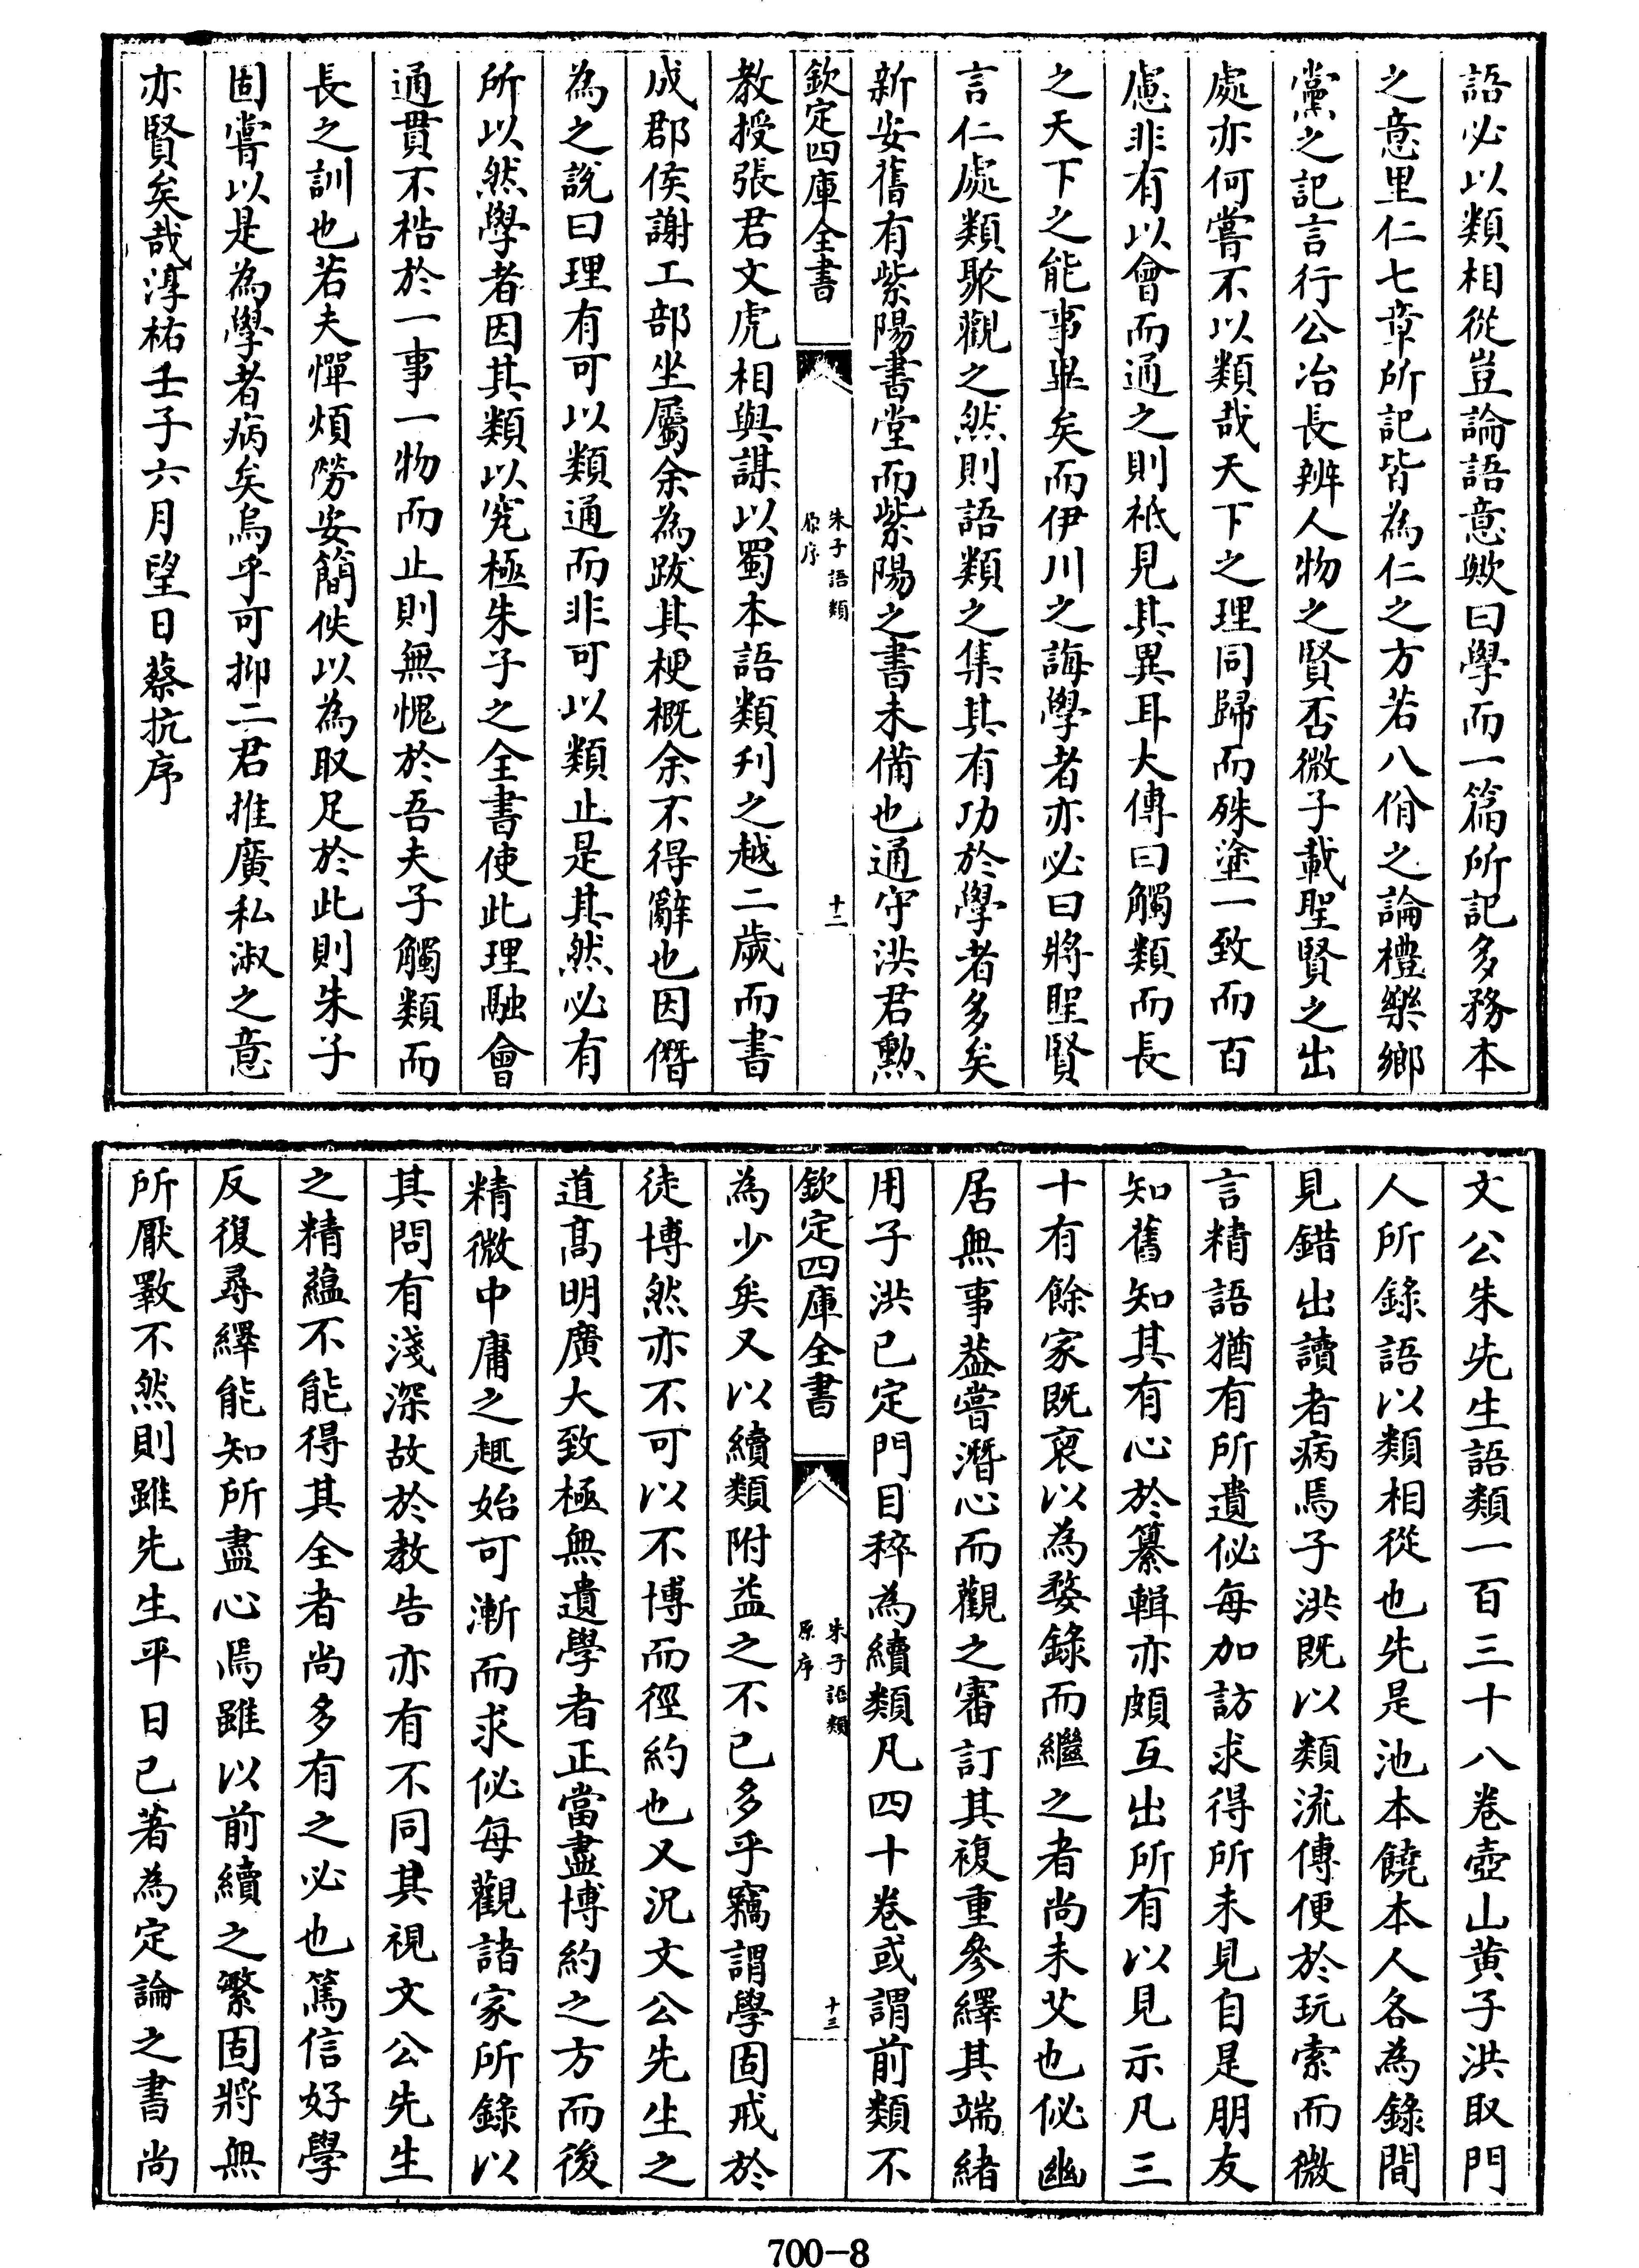 語必以類相從豈論語意歟曰學而一篇所記多務本
之意里仁七章所記皆為仁之方若八佾之論禮樂鄉
黨之記言行公冶長辨人物之賢否微子載聖賢之出
處亦何嘗不以類哉天下之理同歸而殊塗一致而百
慮非有以會而通之則祇見其異耳大傳曰觸類而長
之天下之能事畢矣而伊川之誨學者亦必曰將聖賢
言仁處類聚觀之然則語類之集其有功於學者多矣
新安舊有紫陽書堂而紫陽之書未備也通守洪君勲
欽定四庫全書
朱子語類
原序
十二
教授張君文虎相與謀以蜀本語類刋之越二歲而書
成郡侯謝工部坐屬余為跋其梗概余不得辭也因僭
為之說曰理有可以類通而非可以類止是其然必有
所以然學者因其類以究極朱子之全書使此理融會
通貫不梏於一事一物而止則無愧於吾夫子觸類而
長之訓也若夫憚煩勞安簡佚以為取足於此則朱子
固嘗以是為學者病矣烏乎可抑二君推廣私淑之意
亦賢矣哉淳祐壬子六月望日蔡抗序
文公朱先生語類一百三十八卷壺山黄子洪取門
人所錄語以類相從也先是池本饒本人各為錄間
見錯出讀者病焉子洪既以類流傳便於玩索而微
言精語猶有所遺佖每加訪求得所未見自是朋友
知舊知其有心於纂輯亦頗互出所有以見示凡三
十有餘家既裒以為婺錄而繼之者尚未艾也佖幽
居無事葢嘗潛心而觀之審訂其複重參繹其端緒
用子洪已定門目稡為續類凡四十卷或謂前類不
欽定四庫全書
朱子語類
原序
十三
為少矣又以續類附益之不已多乎竊謂學固戒於
徒博然亦不可以不博而徑約也又况文公先生之
道髙明廣大致極無遺學者正當盡博約之方而後
精微中庸之趣始可漸而求佖每觀諸家所錄以
其問有淺深故於教告亦有不同其視文公先生
之精藴不能得其全者尚多有之必也篤信好學
反復尋繹能知所盡心焉雖以前續之繁固將無
所厭斁不然則雖先生平日已著為定論之書尚
700-8